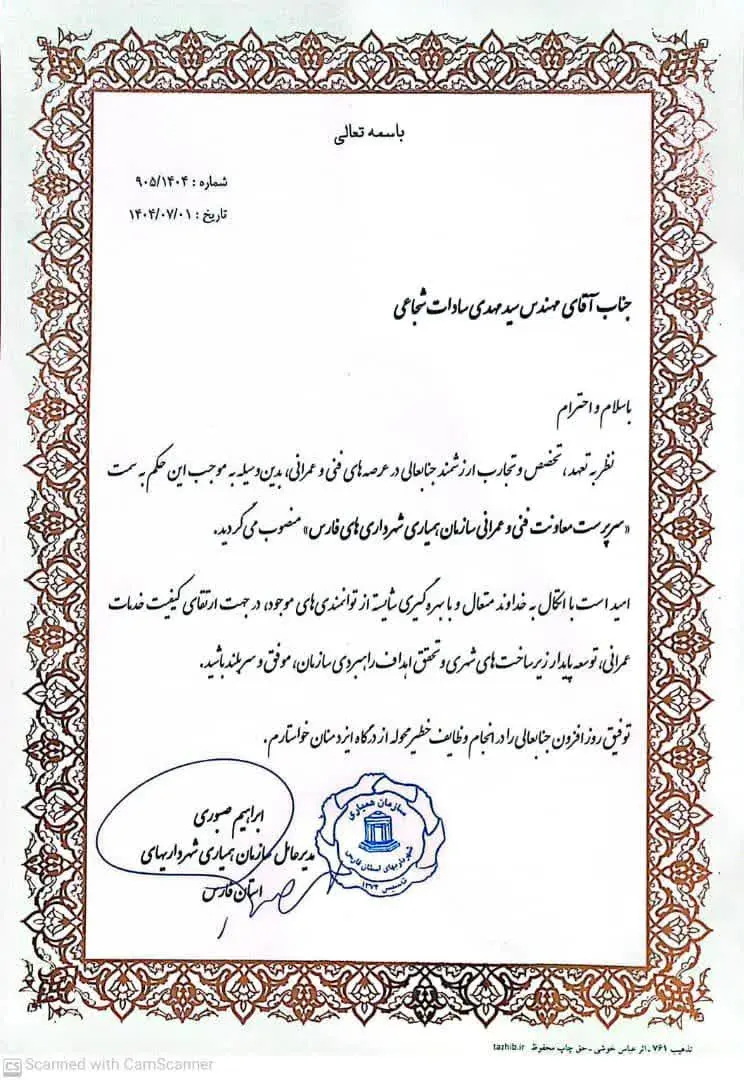 باسمه تعالی
شماره : ۹۰۵/۱۴۰۴
تاریخ : ۱۴۰۴/۰۷/۰۱
جناب آقای مهندس سید مهدی سادات شجاعی
باسلام و احترام
نظر به تعهد، تخصص و تجارب ارزشمند جنابعالی در عرصه های فنی و عمرانی، بدین وسیله به موجب این حکم به سمت
«سرپرست معاونت فنی و عمرانی سازمان همیاری شهرداری های فارس» منصوب می گردید.
امید است با اتکال به خداوند متعال و با بهره گیری شایسته از توانمندی های موجود، در جهت ارتقای کیفیت خدمات
عمرانی، توسعه پایدار زیرساخت های شهری و تحقق اهداف راهبردی سازمان، موفق و سربلند باشید.
توفیق روز افزون جنابعالی را در انجام وظایف خطیر محوله از درگاه ایزد منان خواستارم.
ابراهیم صبوری
مدیرعامل سازمان همیاری شهرداریهای
استان فارس
سازمان همیاری
شهرداریهای استان فارس
تاسیس ۱۳۷۴
تذهیب ۷۶۱ ـ اثر عباس خوشی ـ حق چاپ محفوظ tazhib.ir
CS Scanned with CamScanner